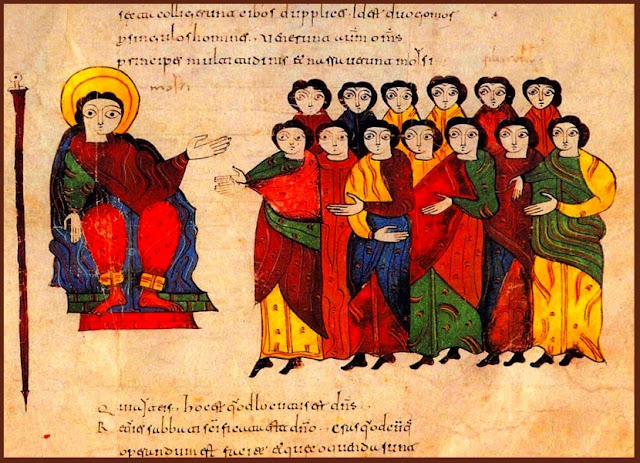 colligerunt cibos dupplices. Idest duo gomor
per singulos homines, Uenerunt aum oms
principes multitudinis et narrauerunt moysi
moysi
Qui ait eis, hoc est quod locutus est dns.
Requies sabbati scificata est dno. cras quodcuq
operandum est facite et que coquenda sunt